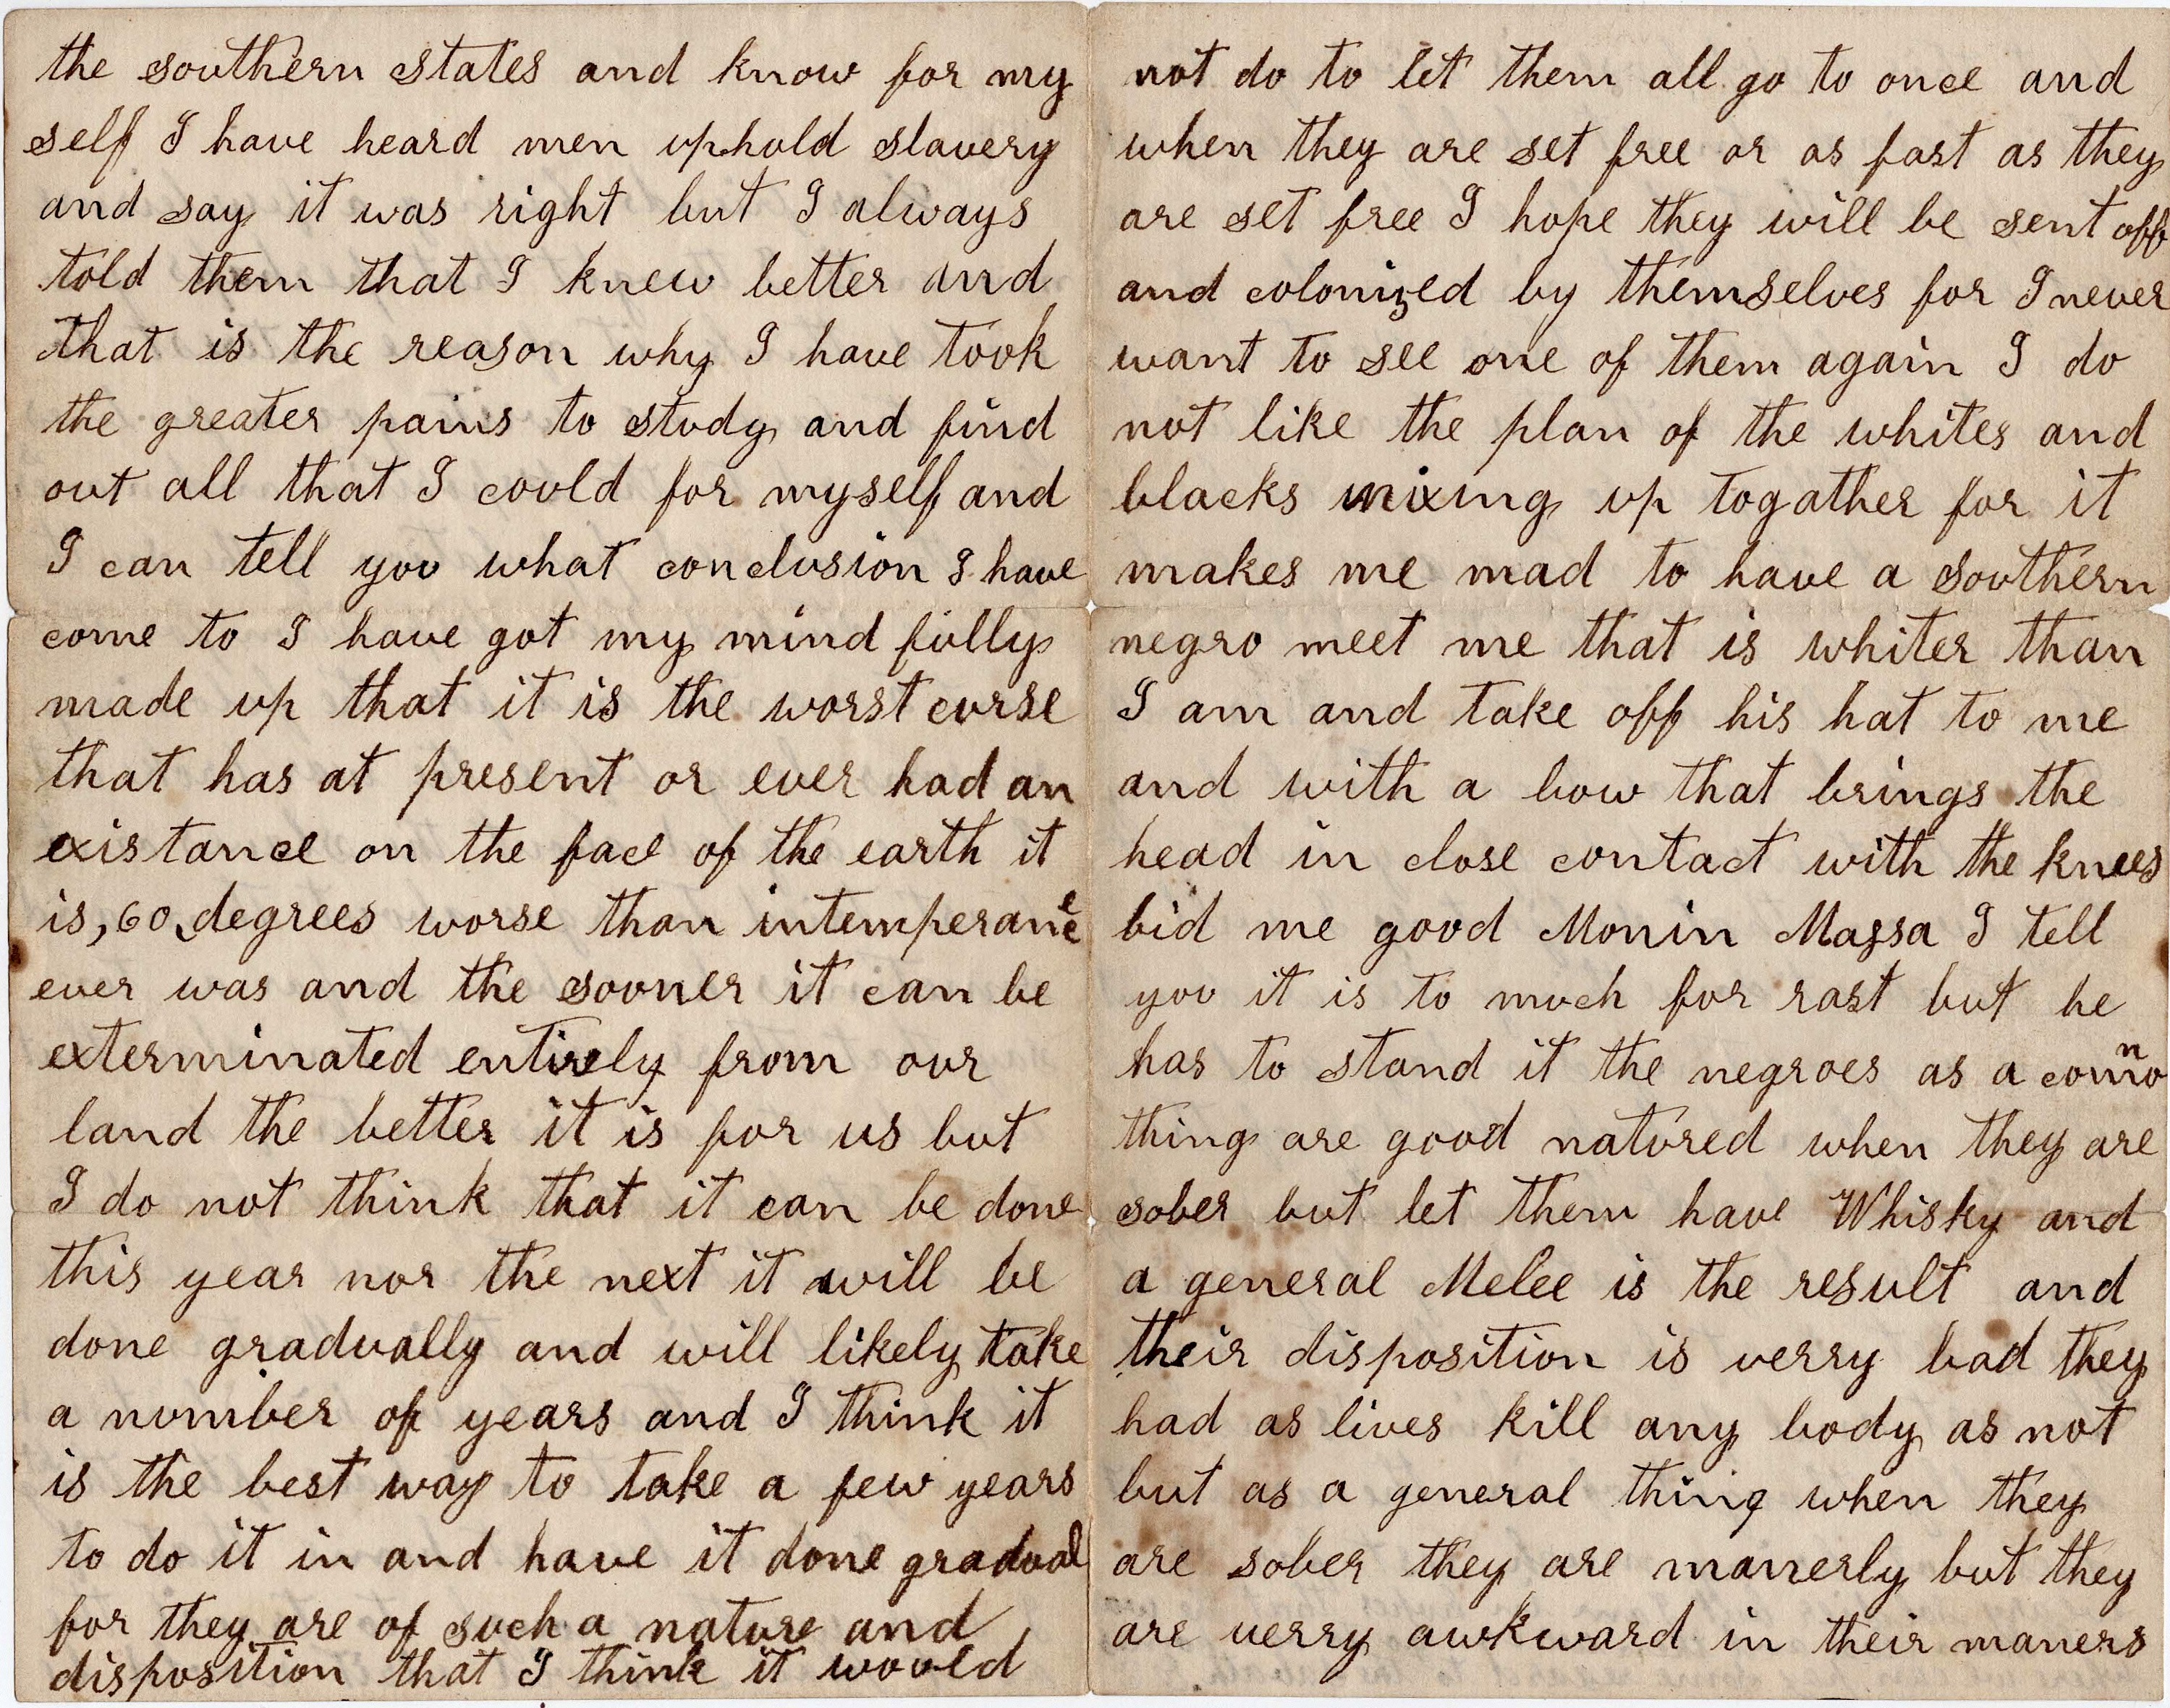 the southern states and know for my
self I have heard men uphold slavery
and say it was right but I always
told them that I knew better and
that is the reason why I have took
the greater pains to study and find
out all that I could for myself and
I can tell you what conclusion I have
come to I have got my mind fully
made up that it is the worst curse
that has at present or ever had an
existance on the face of the earth it
is, 60, degrees worse than intemperance
ever was and the sooner it can be
exterminated entirely from our
land the better it is for us but
I do not think that it can be done
this year nor the next it will be
done gradually and will likely take
a number of years and I think it
is the best way to take a few years
to do it in and have it done gradual
for they are of such a nature and
disposition that I think it would
not do to let them all go to once and
when they are set free or as fast as they
are set free I hope they will be sent off
and colonized by themselves for I never
want to see one of them again I do
not like the plan of the whites and
blacks mixing up togather for it
makes me mad to have a southern
negro meet me that is whiter than
I am and take off his hat to me
and with a bow that brings the
head in close contact with the knees
bid me good Monin Massa I tell
you it is to much for rast but he
has to stand it the negroes as a comon
thing are good natured when they are
sober but let them have Whisky and
a general Melee is the result and
their disposition is verry bad they
had as lives kill any body as not
but as a general thing when they
are sober they are manerly but they
are verry awkward in their maners